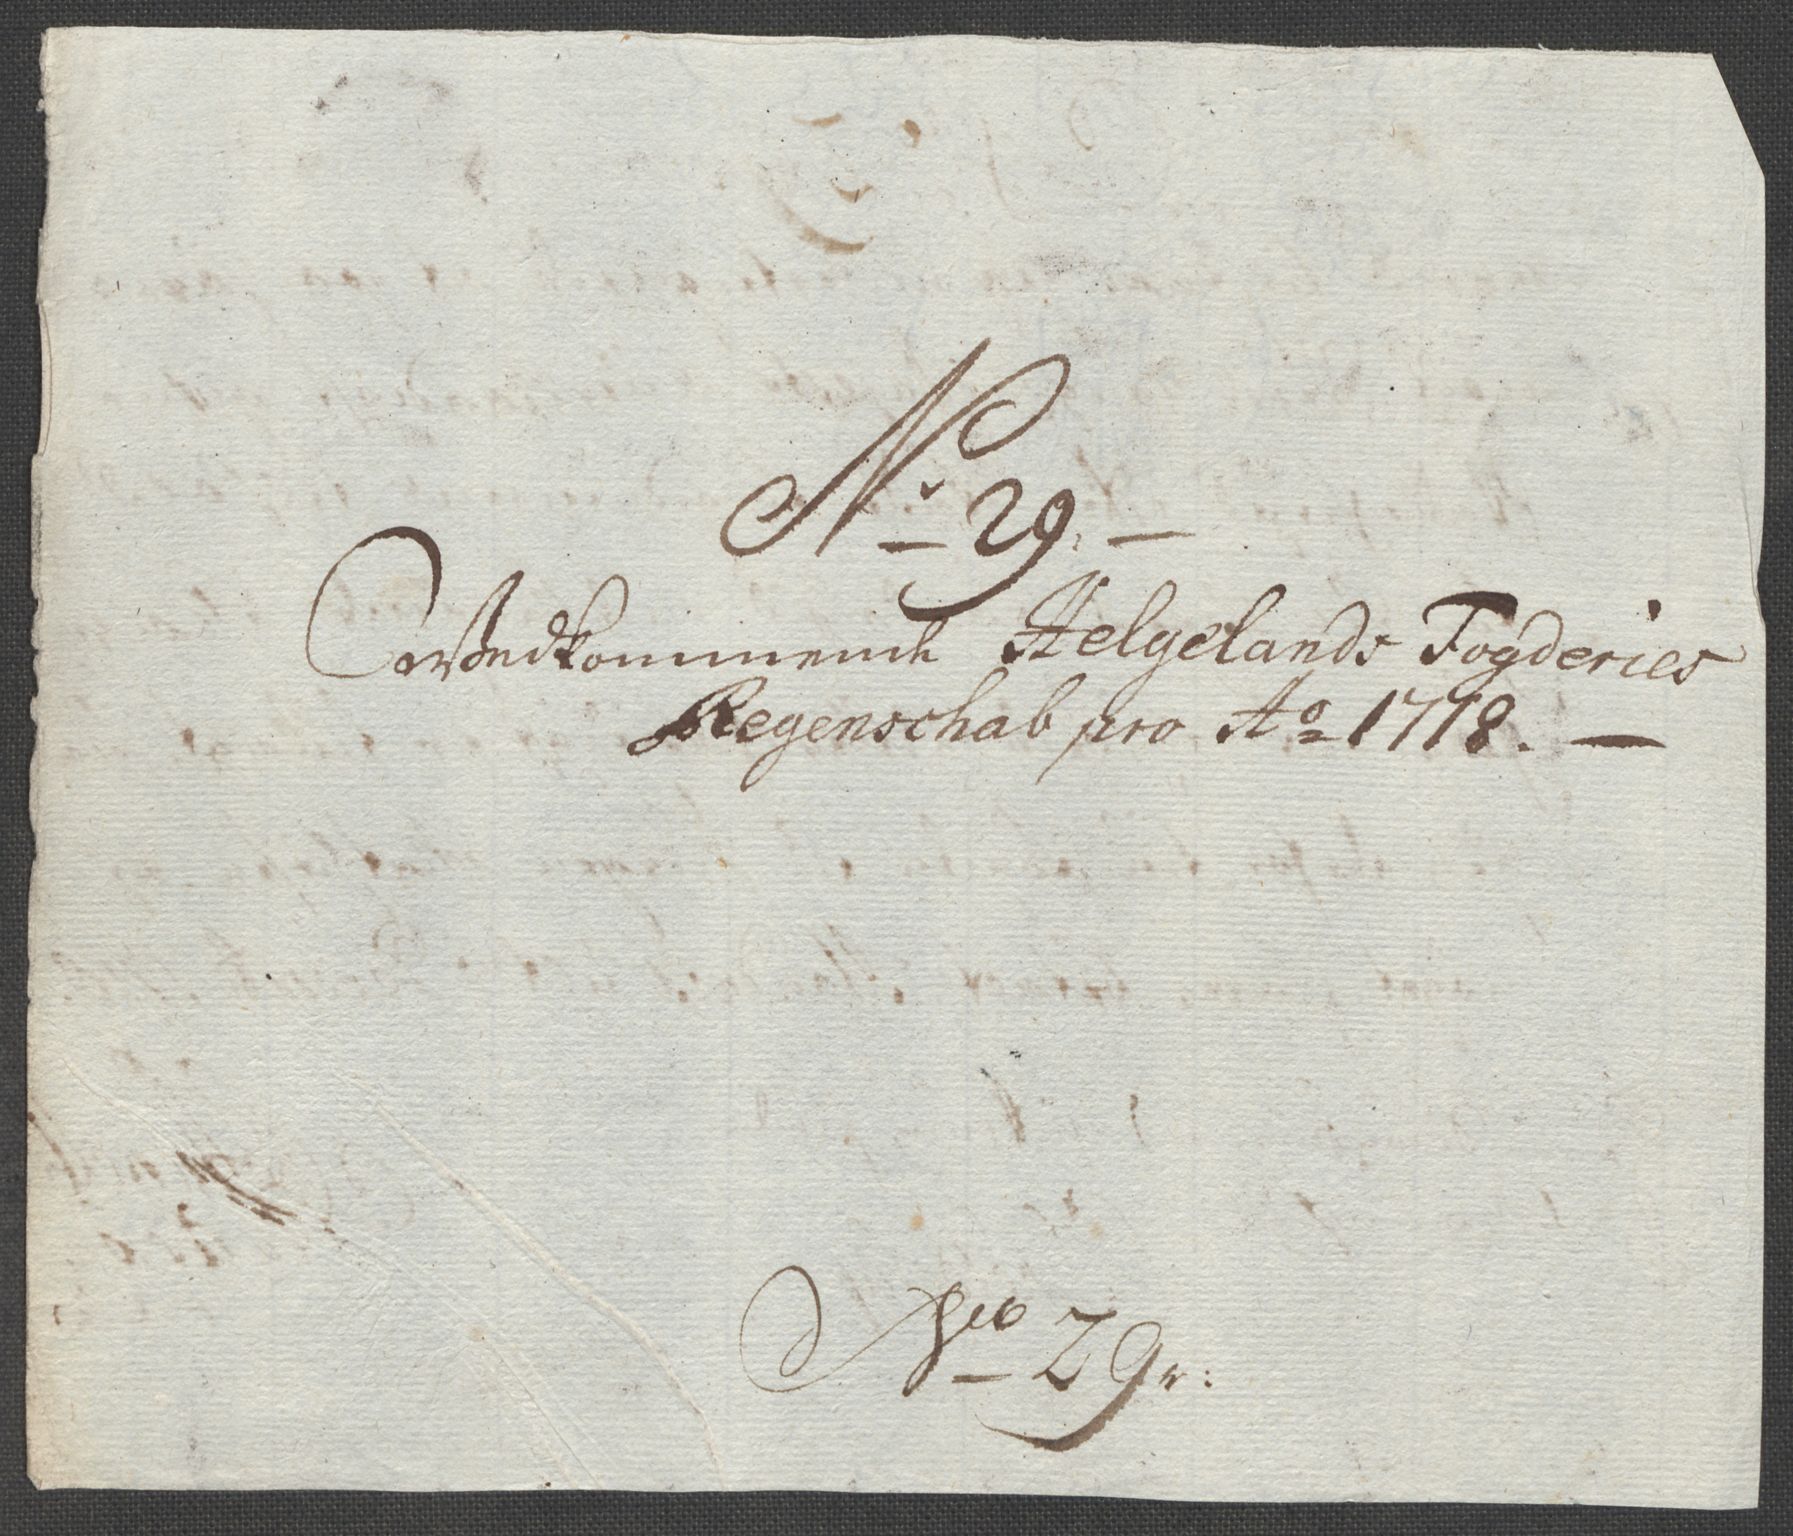 No 29.
Vedkommende Helgelands Fogderies
Regenschab pro Ao 1718.
No 29